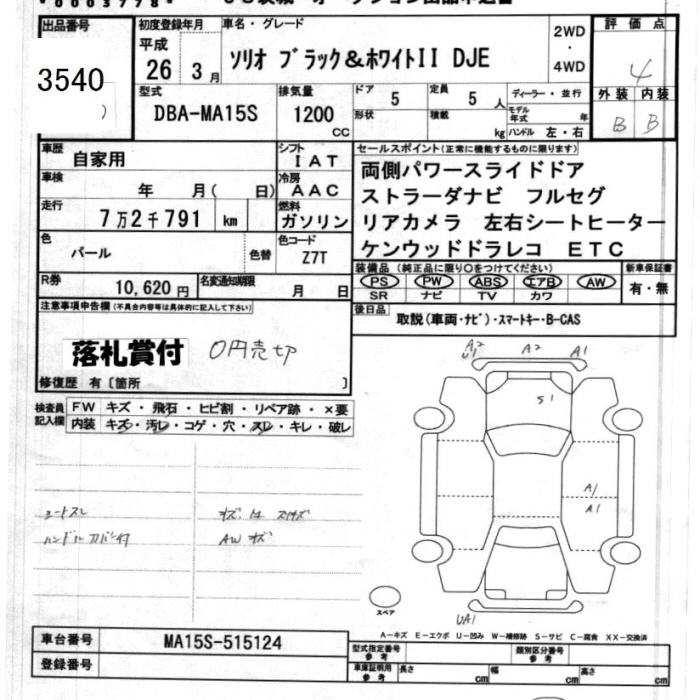 出品番号
3540
初度登録年月
平成
26 3月
車名・グレード
ソリオ ブラック&ホワイトII DJE
2WD
・
4WD
評価点
4
外装 内装
B B
型式
DBA-MA15S
排気量
1200
CC
ドア
5
定員
5 人
形状
積載
kg
ディーラー・並行
モデル年式 年
ハンドル 左・右
車歴
自家用
シフト
IAT
車検
年 月( 日)
冷房
AAC
走行
7万2千791 km
燃料
ガソリン
色
パール
色替
色コード
Z7T
R券
10,620円
名変通知期限
月 日
セールスポイント(正常に機能するものに限ります)
両側パワースライドドア
ストラーダナビ フルセグ
リアカメラ 左右シートヒーター
ケンウッドドラレコ ETC
装備品 (純正品に限り○をつけてください)
PS PW ABS エアB AW
SR ナビ TV カワ
新車保証書
有・無
後日品
取説(車両・ナビ)・スマートキー・B-CAS
注意事項申告欄(不具合内容等は具体的に記入して下さい)
落札賞付 0円売切
修復歴 有〔箇所 〕
検査員
記入欄
FW キズ・飛石・ヒビ割・リペア跡・×要
内装 キズ・汚レ・コゲ・穴・スレ・キレ・破レ
シートスレ
ハンドルカバー付
AWキズ
A2 A2 A1
U1
S1
A1
A1
UA1
スペア
A−キズ E−エクボ U−凹み W−補修跡 S−サビ C−腐食 XX−交換済
車台番号
MA15S-515124
登録番号
型式指定番号
参考
類別区分番号
参考
車庫証明用
参考
長さ cm
幅 cm
高さ cm